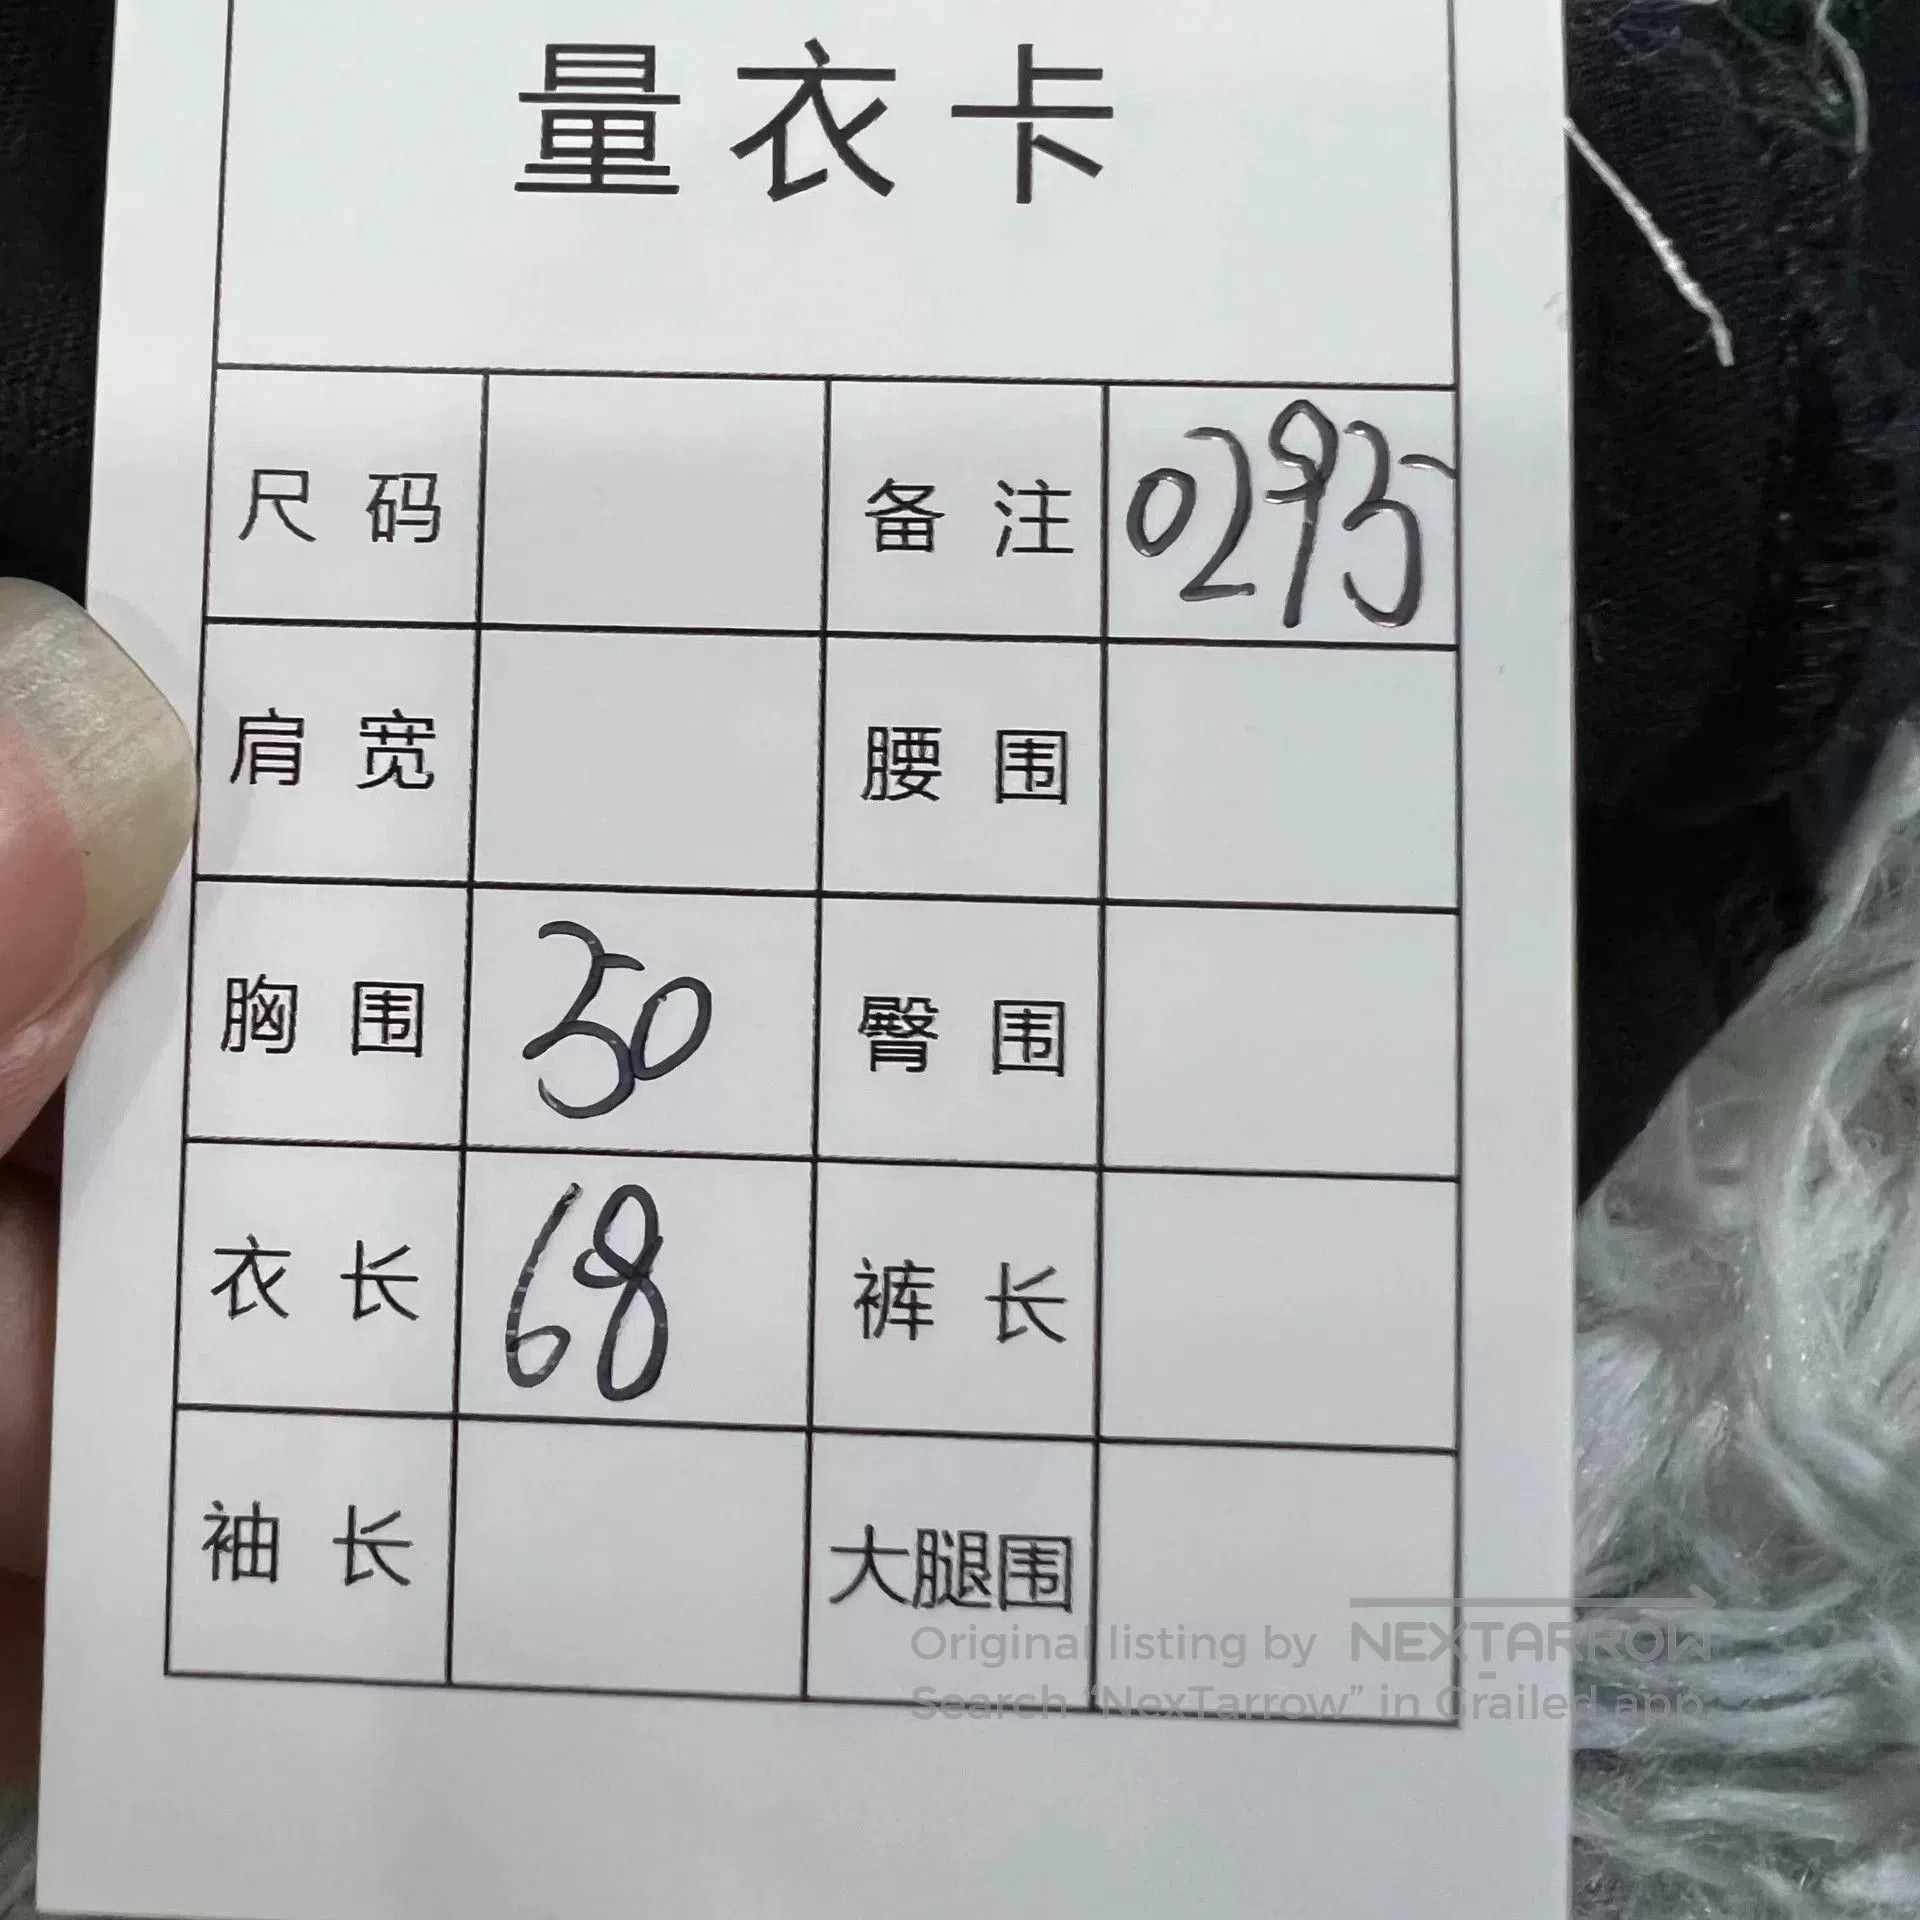 量衣卡
尺码 备注 0295
肩宽 腰围
胸围 50 臀围
衣长 68 裤长
袖长 大腿围
Original listing by NEXTARROW
Search “NexTarrow” in Grailed app.